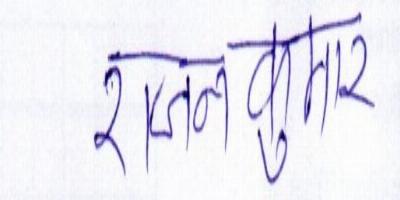 राजन कुमार